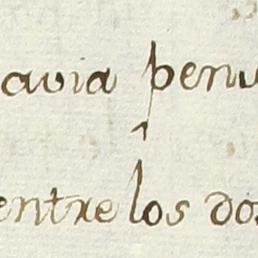 avia penu
entre los dos